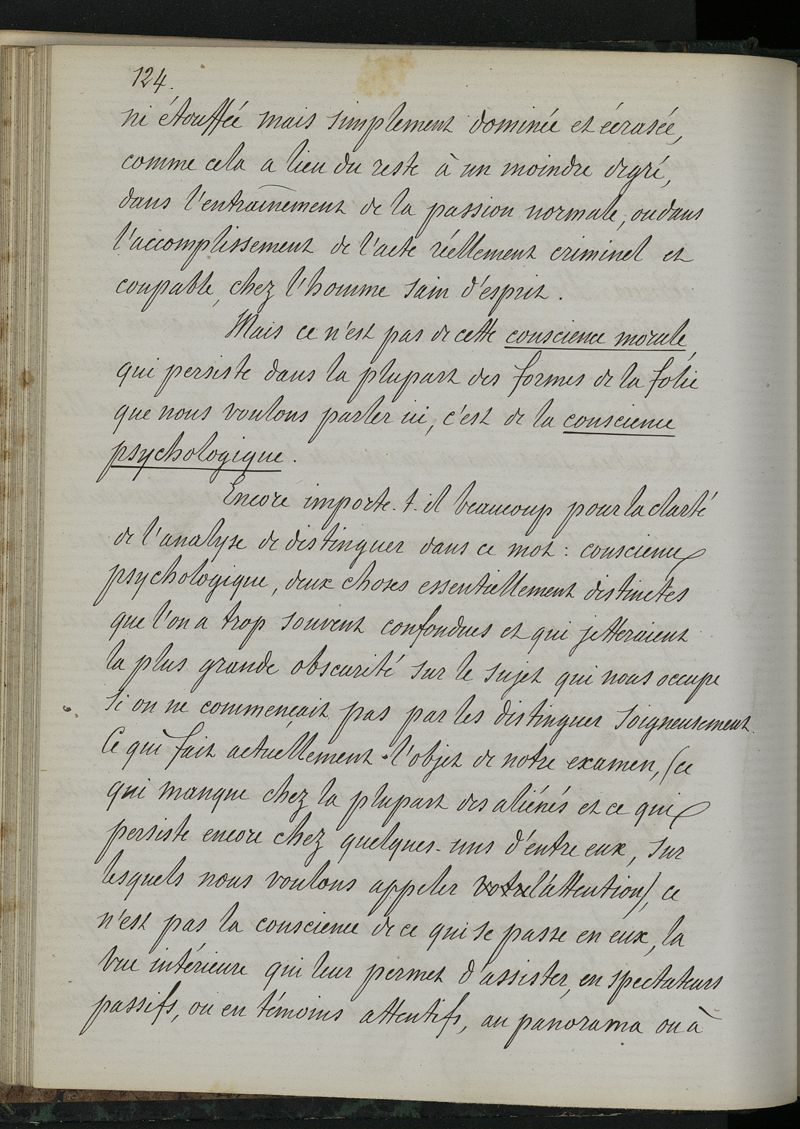 124.
ni étouffée mais simplement dominée et écrasée,
comme cela a lieu du reste à un moindre degré,
dans l'entraînement de la passion normale, ou dans
l'accomplissement de l'acte réellement criminel et
coupable, chez l'homme sain d'esprit.
Mais ce n'est pas de cette conscience morale,
qui persiste dans la plupart des formes de la folie
que nous voulons parler ici, c'est de la conscience
psychologique.
Encore importe-t-il beaucoup pour la clarté
de l'analyse de distinguer dans ce mot : conscience
psychologique, deux choses essentiellement distinctes
que l'on a trop souvent confondues et qui jetteraient
la plus grande obscurité sur le sujet qui nous occupe
si on ne commençait pas par les distinguer soigneusement.
Ce qui fait actuellement l'objet de notre examen, (ce
qui manque chez la plupart des aliénés et ce qui
persiste encore chez quelques-uns d'entre eux, sur
lesquels nous voulons appeler votre l'attention), ce
n'est pas la conscience de ce qui se passe en eux, la
vue intérieure qui leur permet d'assister, en spectateurs
passifs, ou en témoins attentifs, au panorama ou à